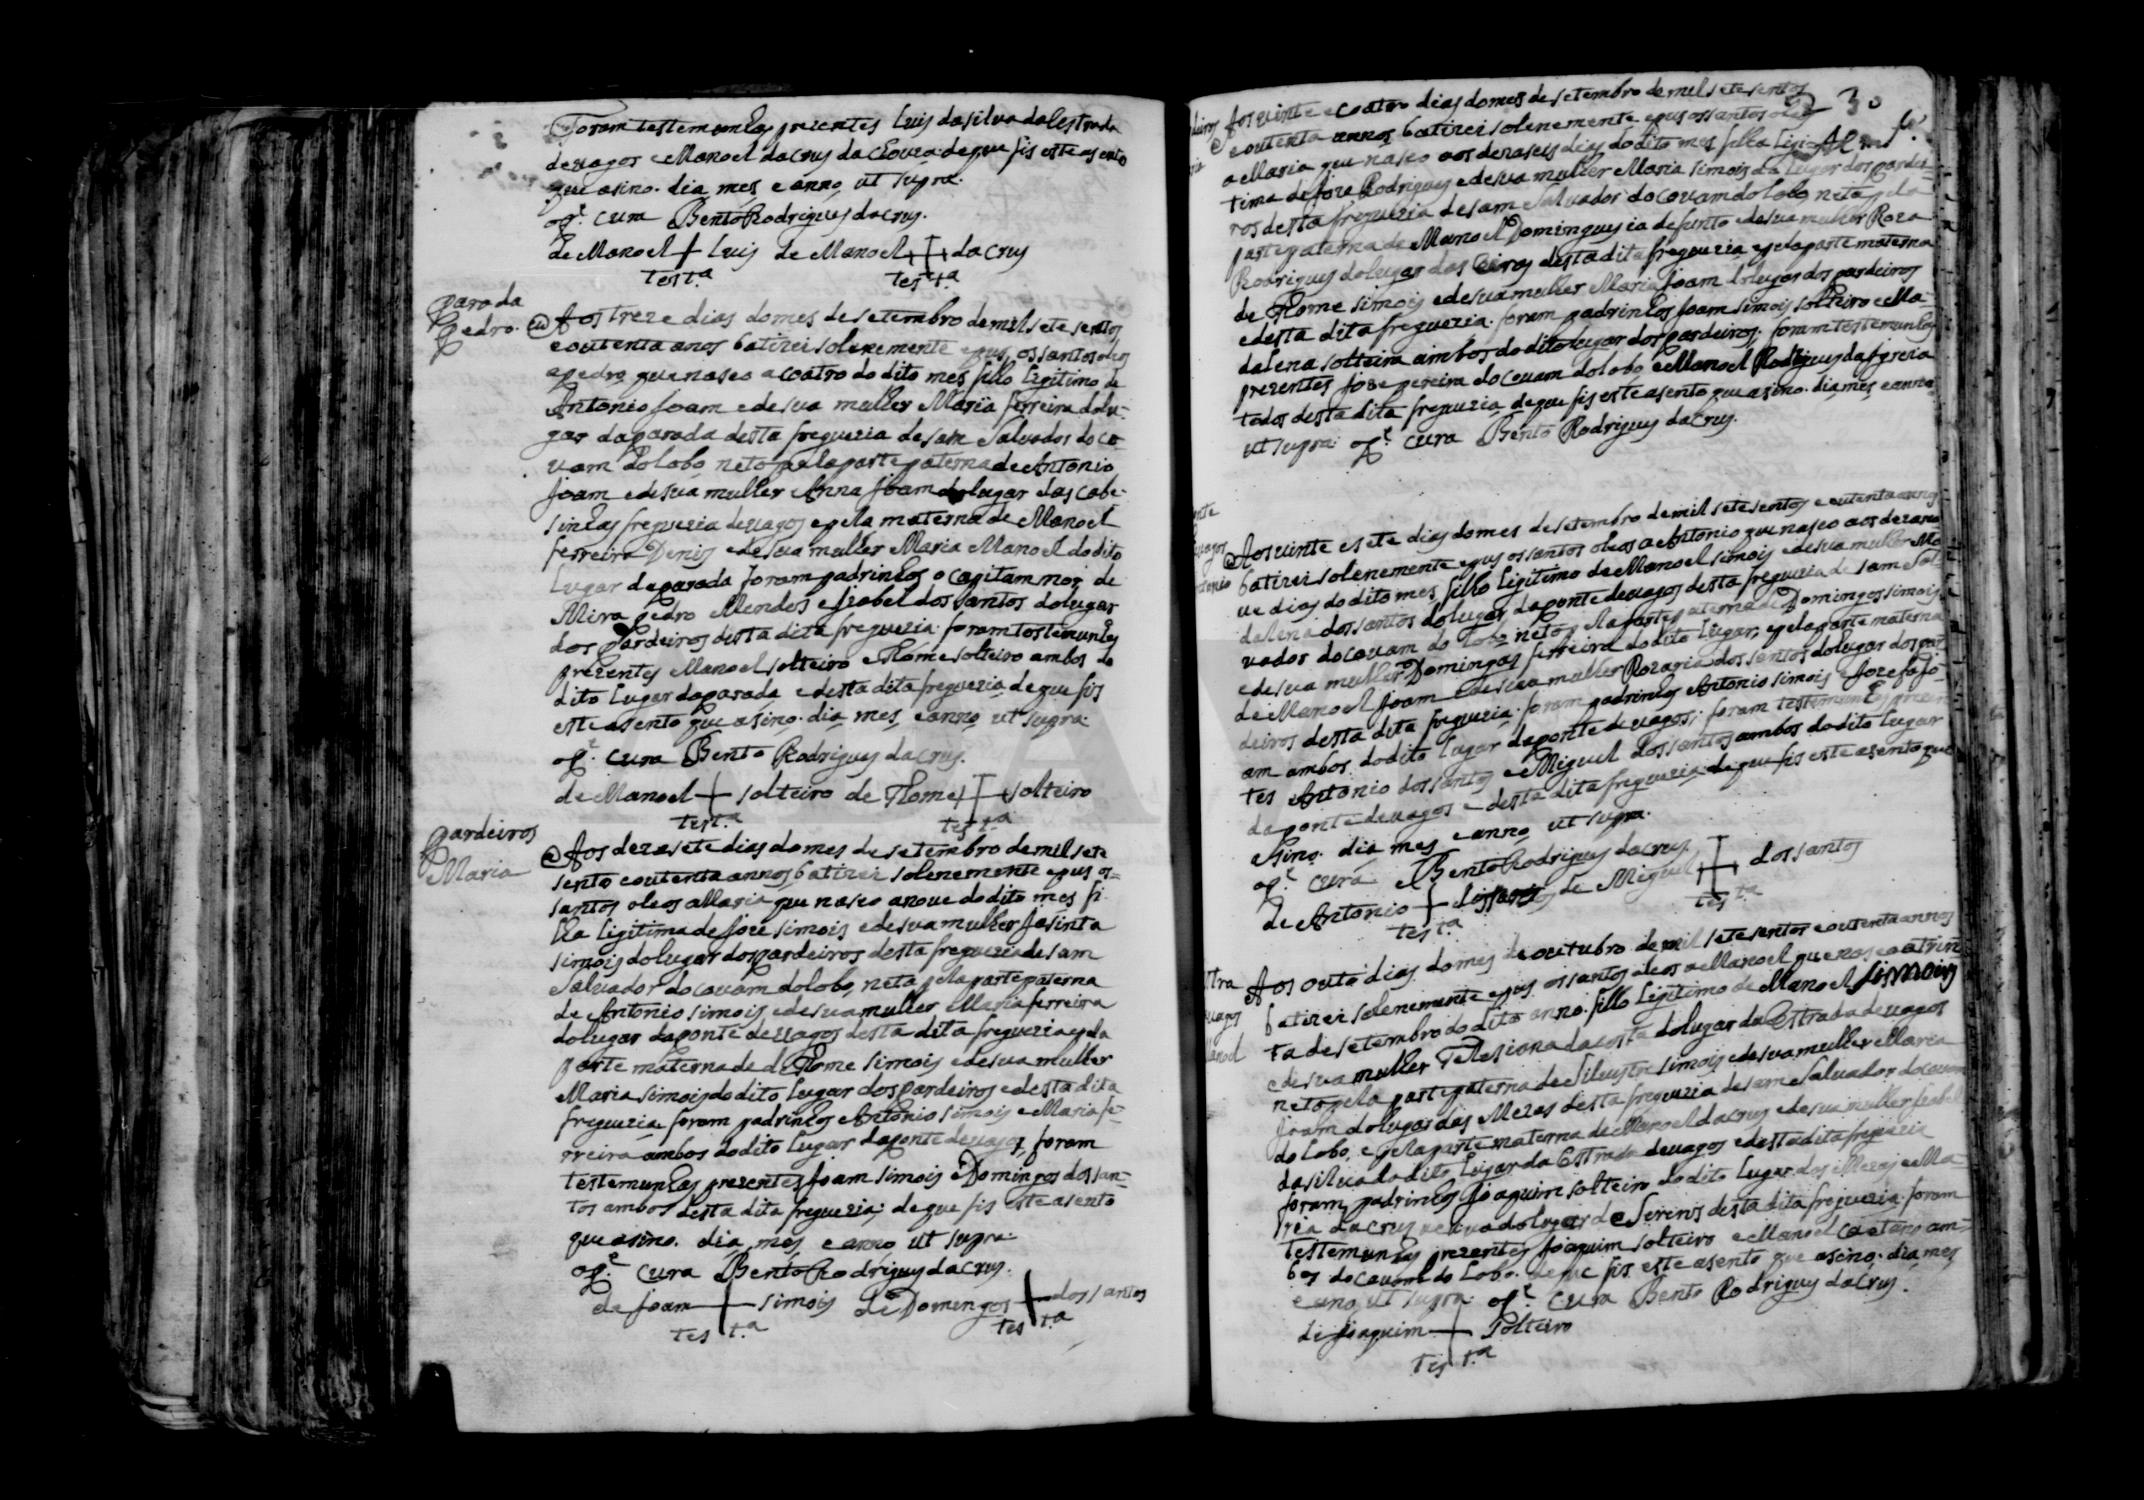 Foram testemunhas prezentes Luis da silva da lestrada
de vagos e Manoel da crus da choura de que fis este asento
que asino. dia mes e anno ut supra.
o Pe. cura Bento Rodrigues da crus.
de Manoel + Luis de Manoel + da crus
test.a test.a
parada
Pedro.
Aos treze dias do mes de setembro de mil sete sentos
e outenta anos batizei solenemente e pus os santos oleos
a pedro que naseo a coatro do dito mes fillo Legitimo de
Antonio Joam e de sua muller Maria ferreira do lu-
gar da parada desta freguezia de sam Salvador do co-
vam do lobo neto pela parte paterna de Antonio
Joam e de sua muller Anna Joam do lugar das cabe-
sinhas freguezia de vagos e pela materna de Manoel
ferreira Denis e de sua muller Maria Manoel do dito
Lugar da parada foram padrinhos o capitam mor de
Mira pedro Mendes e Izabel dos santos do lugar
dos Pardeiros desta dita freguezia. foram testemunhas
prezentes Manoel solteiro e Thome solteiro ambos do
dito Lugar da parada e desta dita freguezia de que fis
este asento que asino. dia mes e anno ut supra.
o Pe. cura Bento Rodrigues da crus.
de Manoel + solteiro de Thome + solteiro
test.a test.a
Pardeiros
Maria
Aos dezasete dias do mes de setembro de mil sete
sento e outenta annos batizei solenemente e pus os
santos oleos a Maria que naseo a nove do dito mes fi-
lha Legitima de Joze simois e de sua muller Jasinta
simois do lugar dos pardeiros desta freguezia de sam
Salvador do covam do lobo, neta pela parte paterna
de Antonio simois e de sua muller Maria ferreira
do lugar da ponte de vagos desta dita freguezia e pela
parte materna de Thome simois e de sua muller
Maria simois do dito Lugar dos pardeiros e desta dita
freguezia foram padrinhos Antonio simois e Maria fe-
rreira ambos do dito Lugar da ponte de vagos, foram
testemunhas prezentes Joam simois e Domingos dos san-
tos ambos desta dita freguezia; de que fis este asento
que asino. dia mes e anno ut supra.
o Pe. cura Bento Rodrigues da crus.
de Joam + simois de Domingos + dos santos
test.a test.a
30
Aos vinte e coatro dias do mes de setembro de mil sete sentos
e outenta annos batizei solenemente e pus os santos oleos
a Maria que naseo aos dezaseis dias do dito mes filha Legi-
tima de Joze Rodrigues e de sua muller Maria simois do Lugar dos pardei-
ros desta freguezia de sam Salvador do covam do lobo neta pela
parte paterna de Manoel Domingues ia defunto e de sua muller Roza
Rodrigues do lugar das Leiras desta dita freguezia e pela parte materna
de Thome simois e de sua muller Maria Joam do lugar dos pardeiros
e desta dita freguezia. foram padrinhos Joam simois solteiro e Ma-
dalena solteira ambos do dito lugar dos pardeiros. foram testemunhas
prezentes Joze pereira do covam do lobo e Manoel Rodrigues da Igreia
todos desta dita freguezia de que fis este asento que asino. dia mes e anno
ut supra. o Pe. cura Bento Rodrigues da crus.
Aos vinte e sete dias do mes de setembro de mil sete sentos e outenta annos
batizei solenemente e pus os santos oleos a Antonio que naseo aos dezano-
ve dias do dito mes fillo Legitimo de Manoel simois e de sua muller Ma-
dalena dos santos do lugar da ponte de vagos desta freguezia de sam Sal-
vador do covam do lobo neto pela parte paterna de Domingos simois
e de sua muller Domingas ferreira do dito Lugar, e pela parte materna
de Manoel Joam e de sua muller Rozaria dos santos do lugar dos par-
deiros desta dita freguezia. foram padrinhos Antonio simois e Jozefa Jo-
am ambos do dito Lugar da ponte de vagos; foram testemunhas prezen-
tes Antonio dos santos e Miguel dos santos ambos do dito Lugar
da ponte de vagos e desta dita freguezia de que fis este asento que
asino. dia mes e anno ut supra.
o Pe. cura Bento Rodrigues da crus.
de Antonio + dos santos de Miguel + dos santos
test.a test.a
Aos outo dias do mes de outubro de mil sete sentos e outenta annos
batizei solenemente e pus os santos oleos a Manoel que naseo a trin-
ta de setembro do dito anno. fillo Legitimo de Manoel simois
e de sua muller Telesiona da costa do lugar da Estrada de vagos
neto pela parte paterna de Silvestre simois e de sua muller Maria
Joam do lugar das Mezas desta freguezia de sam Salvador do covam
do Lobo, e pela parte materna de Manoel da crus e de sua muller Izabel
da silva do dito Lugar da Estrada de vagos e desta dita freguezia
foram padrinhos Joaquim solteiro do dito Lugar das Mezas e Ma-
ria da crus veuva do lugar de Sereno desta dita freguezia. foram
testemunhas prezentes Joaquim solteiro e Manoel Caetano am-
bos do covam do Lobo. de que fis este asento que asino. dia mes
e anno ut supra. o Pe. cura Bento Rodrigues da crus.
de Joaquim + Solteiro
test.a